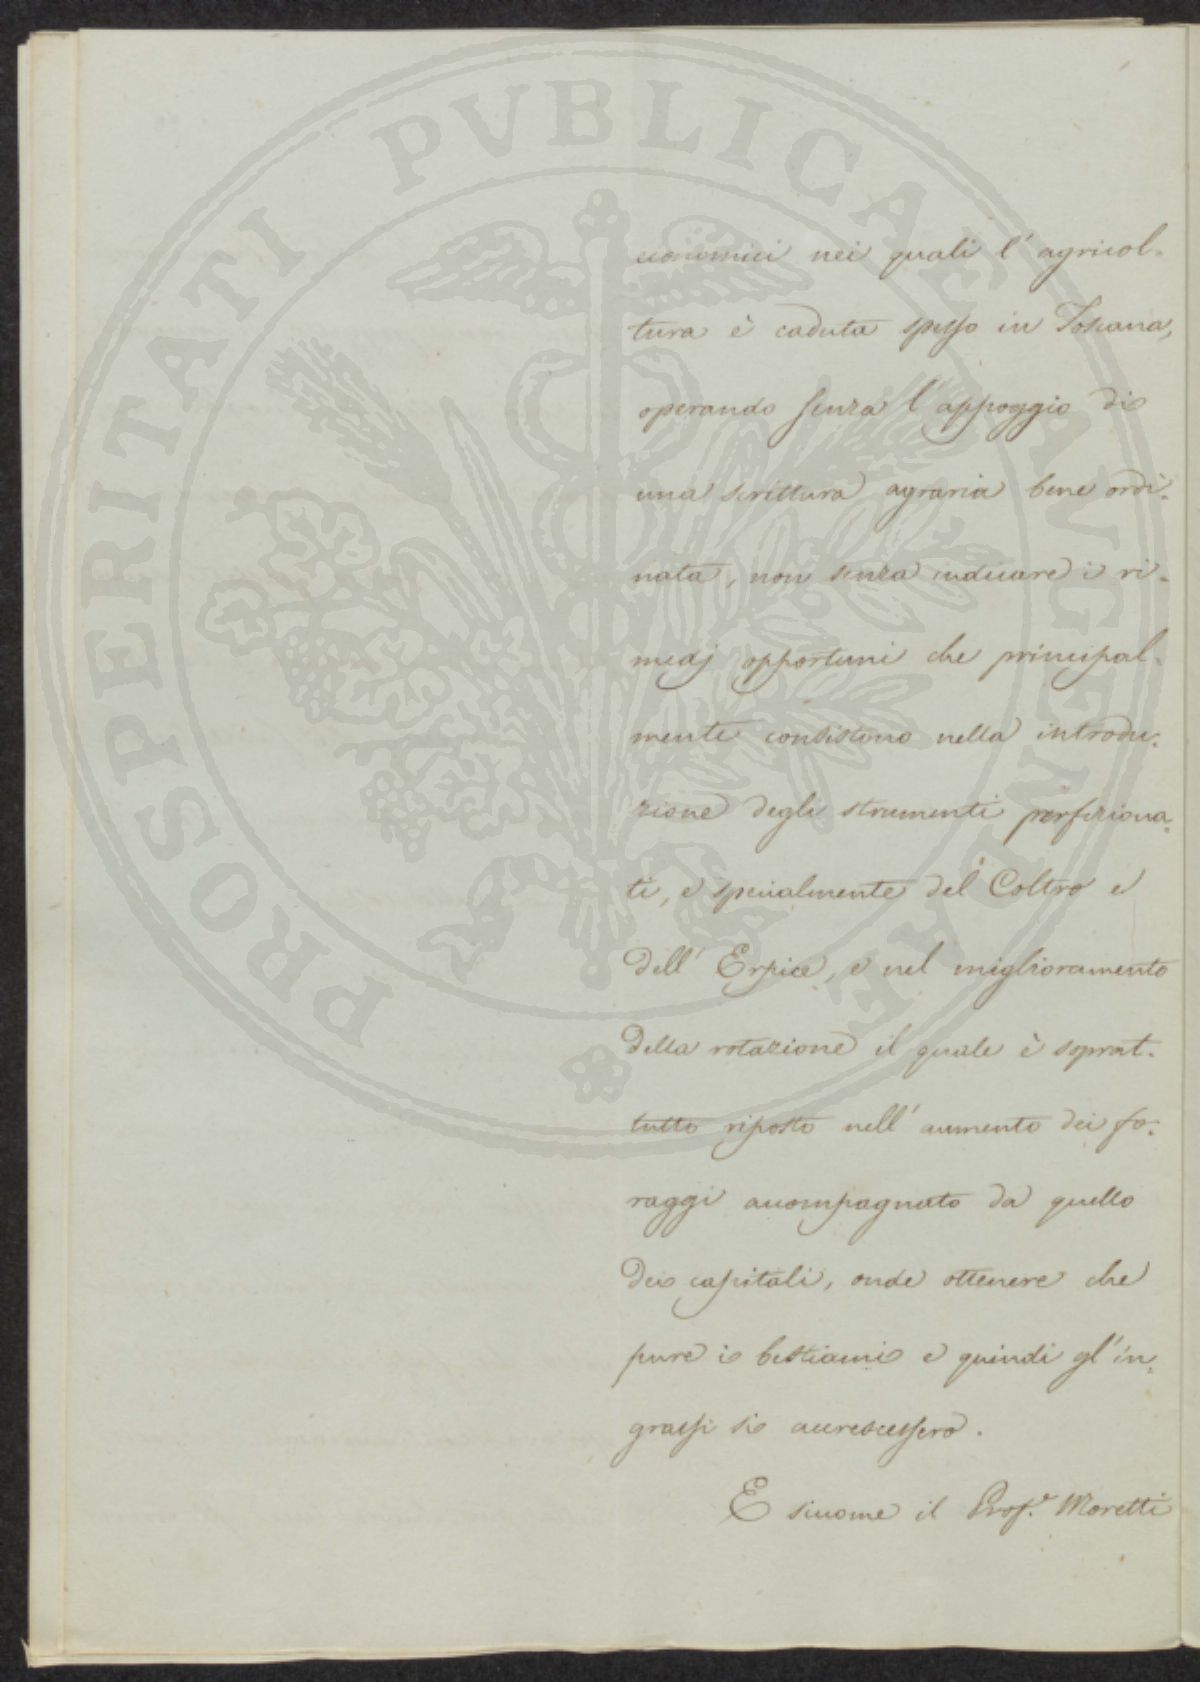 PROSPERITATI PUBLICAE AUGENDAE
economici nei quali l'agricol-
tura è caduta spesso in Toscana,
operando senza l'appoggio di
una scrittura agraria bene ordi-
nata, non senza indicare i ri-
medj opportuni che principal-
mente consistono nella introdu-
zione degli strumenti perfeziona-
ti, e specialmente del Coltro e
dell'Erpice, e nel miglioramento
della rotazione il quale è soprat-
tutto riposto nell'aumento dei fo-
raggi accompagnato da quello
dei capitali, onde ottenere che
pure i bestiami e quindi gl'in-
grassi si accrescessero.
E siccome il Prof.e Moretti